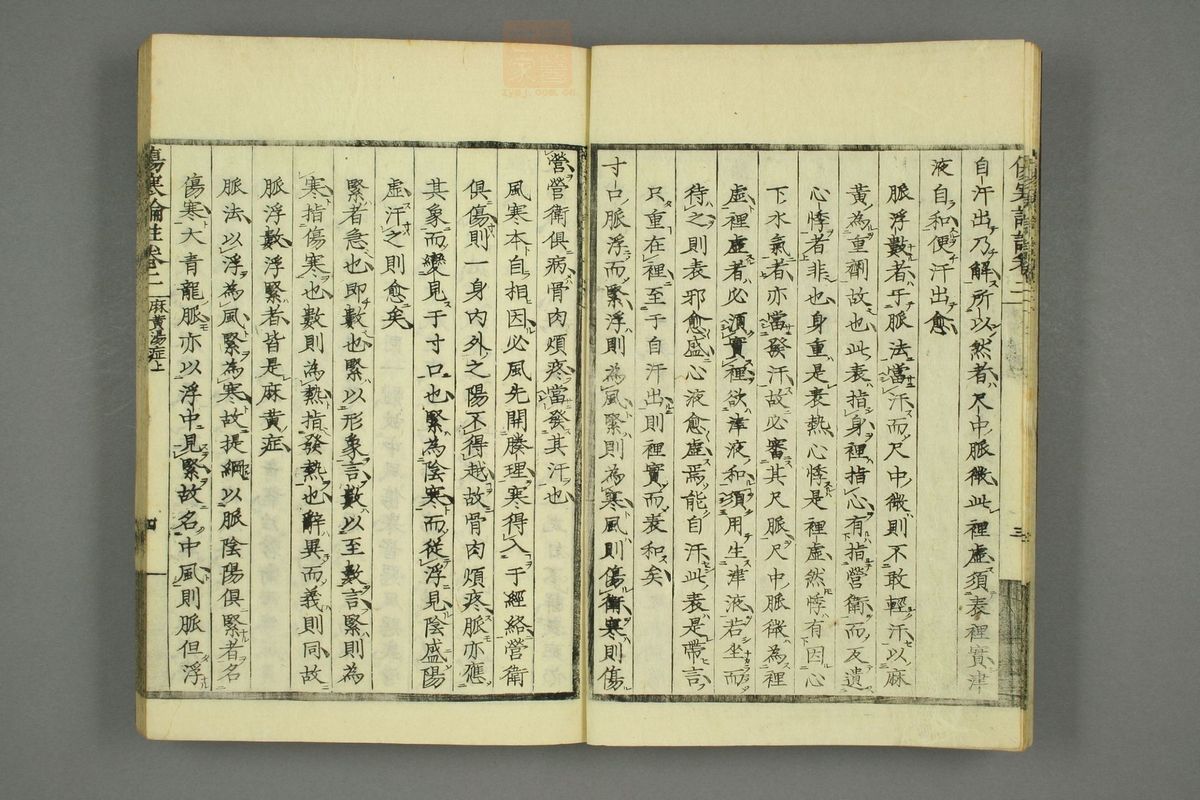 自汗出乃解所以然者尺中脈微此裡虛須表裡實津
液自和便汗出愈
脈浮數者于脈法當汗而尺中微則不敢輕汗以麻
黃為重劑故也此表指身裡指心有指營衛而反遺
心悸者非也身重是表熱心悸是裡虛然悸有因心
下水氣者亦當發汗故必審其尺脈尺中脈微為裡
虛裡虛者必須實裡欲津液和須用生津液若坐而
待之則表邪愈盛心液愈虛焉能自汗此表是帶言
只重在裡至于自汗出則裡實而表和矣
寸口脈浮而緊浮則為風緊則為寒風則傷衛寒則傷
營營衛俱病骨肉煩疼當發其汗也
風寒本自相因必風先開腠理寒得入于經絡營衛
俱傷則一身內外之陽不得越故骨肉煩疼脈亦應
其象而變見于寸口也緊為陰寒而從浮見陰盛陽
虛汗之則愈矣
緊者急也即數也緊以形象言數以至數言緊則為
寒指傷寒也數則為熱指發熱也辭異而義則同故
脈浮數浮緊者皆是麻黃症
脈法以浮為風緊為寒故提綱以脈陰陽俱緊者名
傷寒大青龍脈亦以浮中見緊故名中風則脈但浮
傷寒論註卷二 麻黃湯症上 四
三